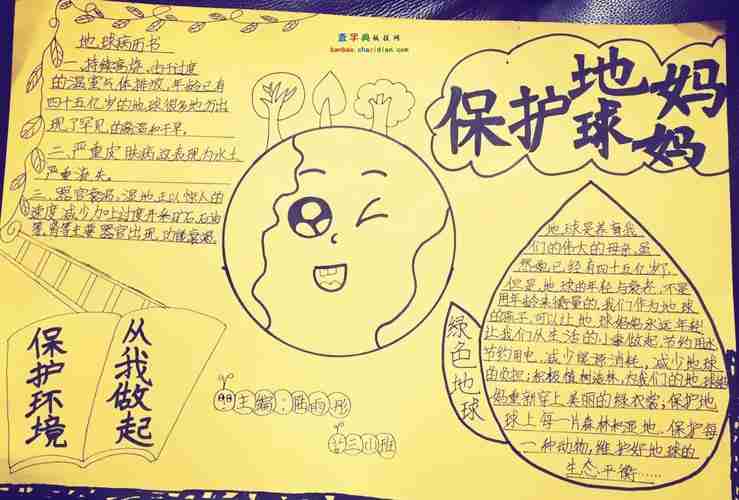 查字典板报网
banbao.chazidian.com
保护地球妈妈
地球病历书
一、持续高烧，由于过度
的温室气体排放，年龄已有
四十五亿岁的地球很多地方出
现了罕见的高温和干旱。
二、严重皮肤病这表现为水土
严重流失。
三、器官衰竭，湿地正以惊人的
速度减少加上过度开采矿石，石油
等，肾等主要器官出现功能衰竭。
保护环境
从我做起
主编：
三(1)班
绿色地球
地球是养育我
们的伟大的母亲，虽
然她已经有四十五亿岁了，
但是，地球的年轻与衰老，不是
用年龄来衡量的，我们作为地球
的孩子，可以让地球妈妈永远年轻！
让我们从生活的小事做起，节约用水
节约用电，减少能源消耗，减少地球
的负担；积极植树造林，为我们的地球妈
妈重新穿上美丽的绿衣裳；保护地
球上每一片森林和湿地、保护每
一种动物，维护好地球的
生态平衡……